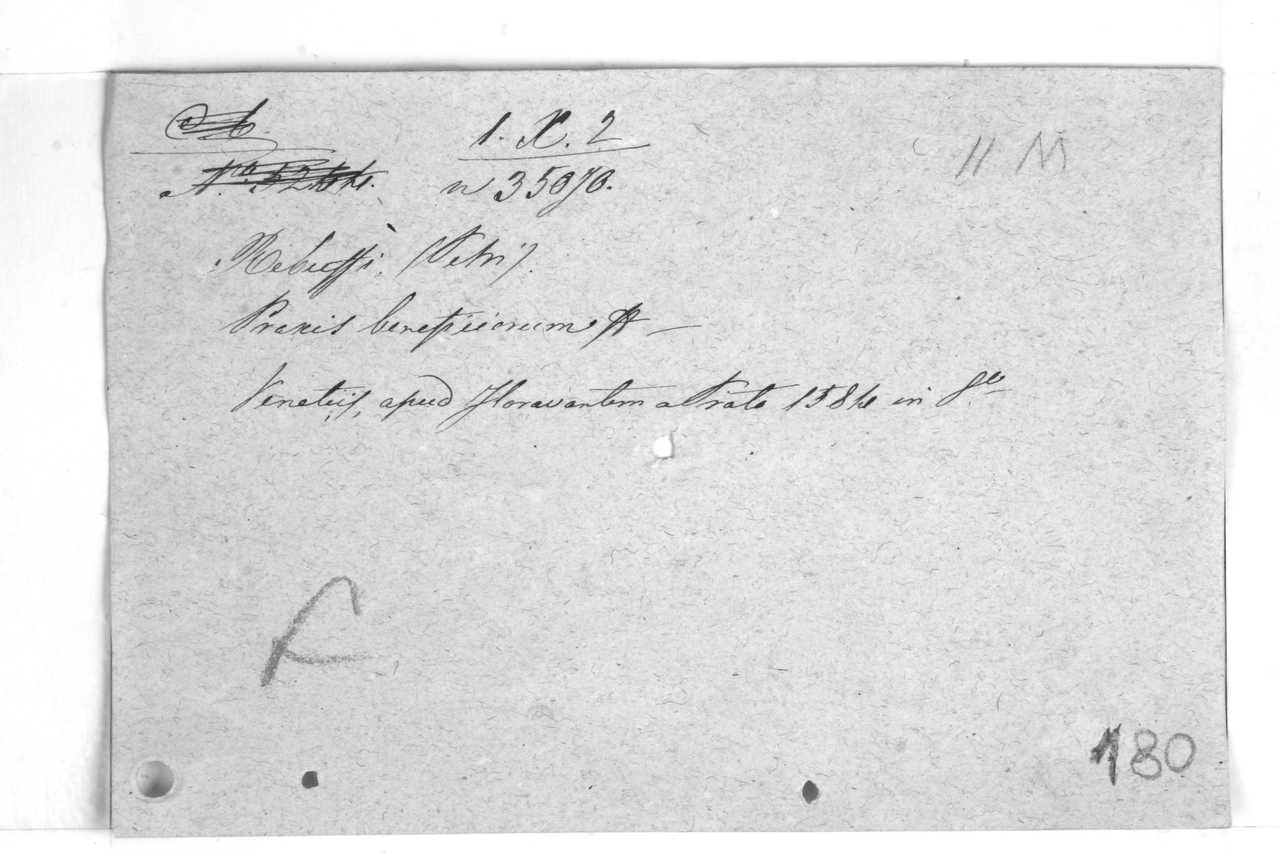 1. X. 2
11 M
n 35070.
Rebuffi. (Petri).
Praxis beneficiorum
Venetiis, apud Floravantem a Prato 1584 in 8º
180